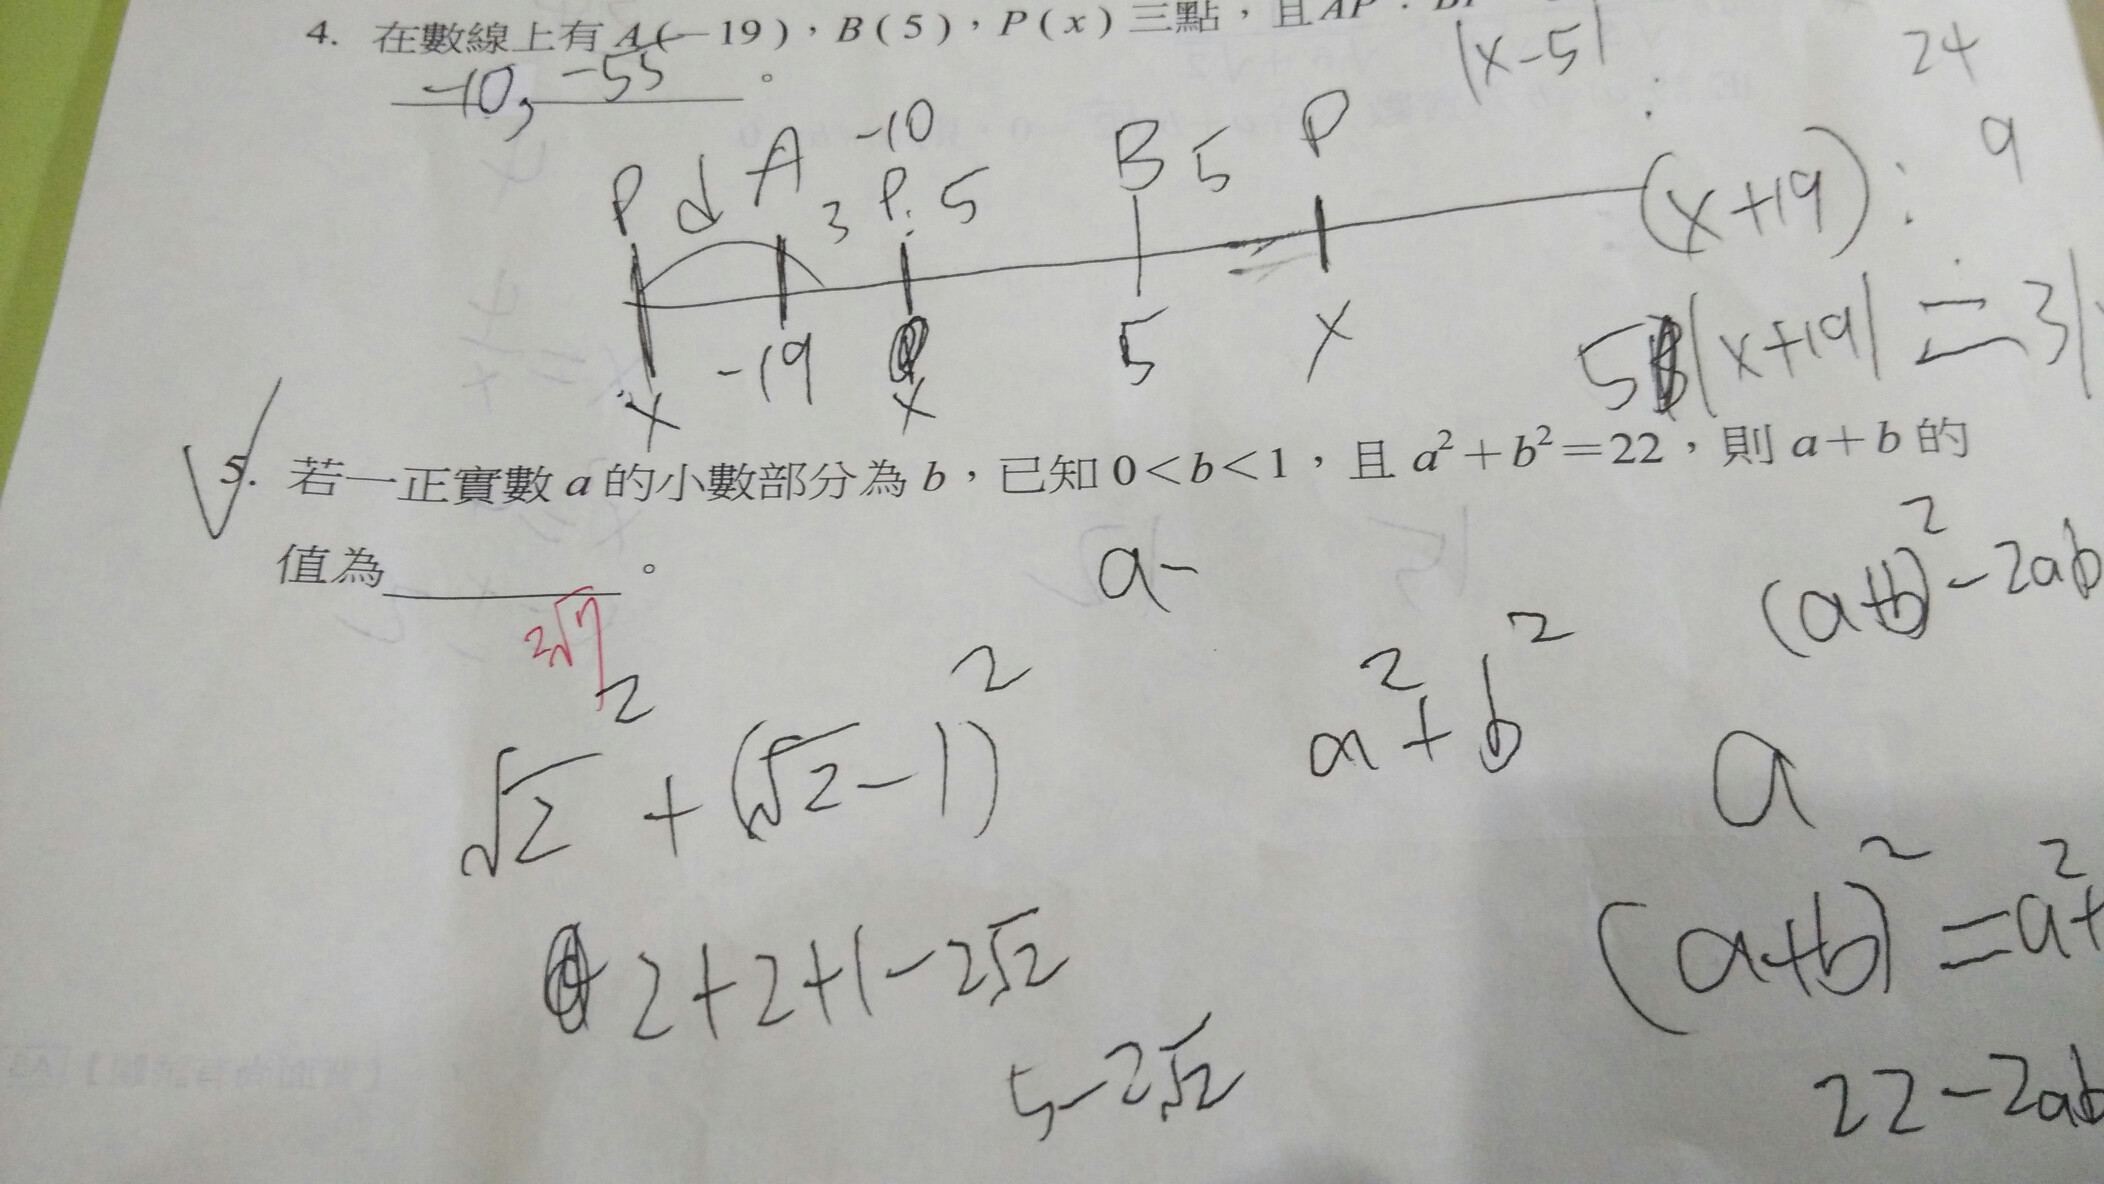 4. 在數線上有 A(-19)，B(5)，P(x)三點，且
-10, -55 。
|x-5| :
24
(x+19) : 9
P d A -10
3 P. 5 B 5 P
x -19 x 5 x
5|x+19| = 3|
5. 若一正實數 a 的小數部分為 b，已知 0<b<1，且 a²+b²=22，則 a+b 的
值為 。
2√7
a-
(a+b)²-2ab
√2² + (√2-1)²
a²+b²
a
2+2+1-2√2
(a+b)²=a²+
5-2√2
22-2ab